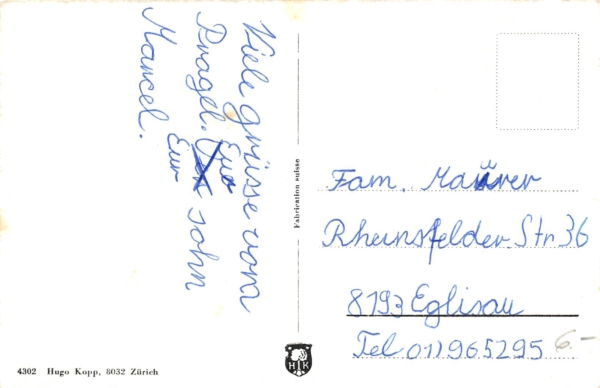 Viele grüsse vom
Pragel. Eur
Eur sohn
Marcel.
Fabrication suisse
Fam. Maürer
Rheinsfelder Str 36
8193 Eglisau
Tel 01) 965295
6.-
HK
4302 Hugo Kopp, 8032 Zürich